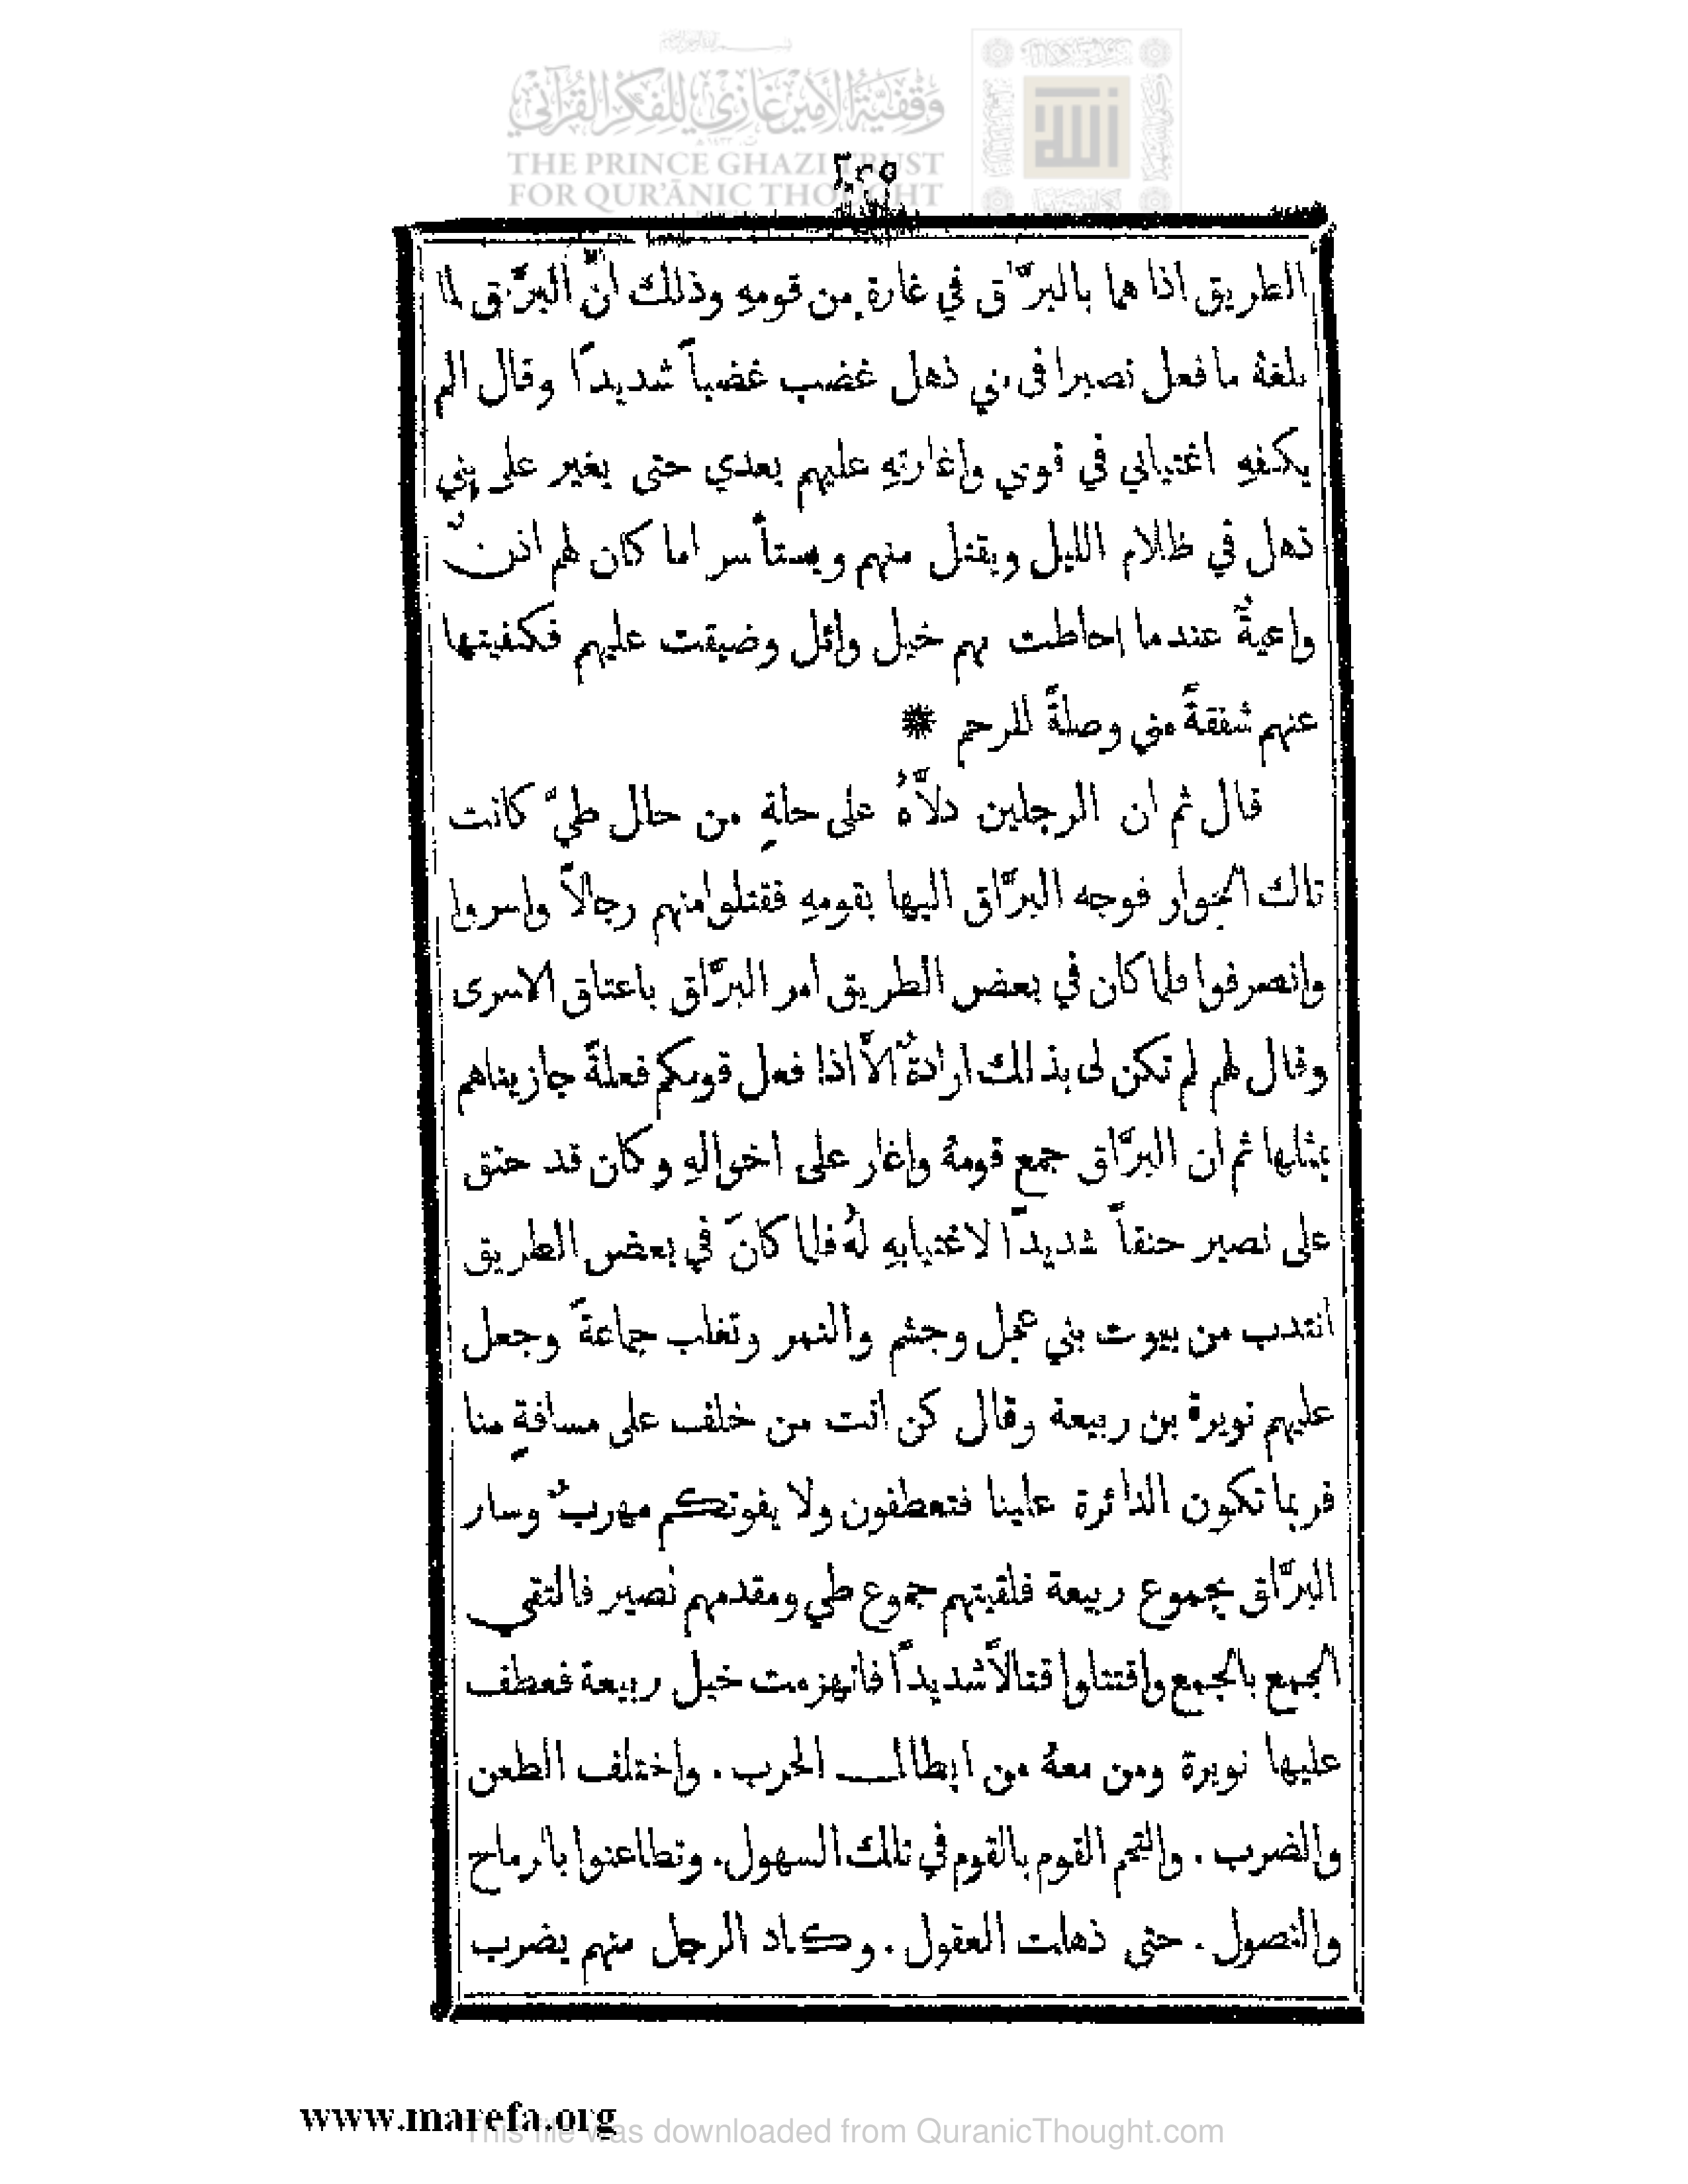 وقفية الأمير غازي للفكر القرآني
THE PRINCE GHAZI TRUST
FOR QUR'ĀNIC THOUGHT
٤٢٥
الطريق اذا هما بالبرَّاق في غارة من قومهِ وذلك انَّ البرَّاق لما
بلغهُ ما فعل نصيرا في بني ذهل غضب غضباً شديداً وقال الم
يكفهِ اغتيابي في قومي واغارتهِ عليهم بعدي حتى يغير على بني
ذهل في ظلام الليل ويقتل منهم ويستأسر اما كان لهم اذنٌ
واعيةٌ عندما احاطت بهم خيل وائل وضيقت عليهم فكفيتها
عنهم شفقةً مني وصلةً للرحم *
قال ثم ان الرجلين دلاَّهُ على حلةٍ من حلل طيّ كانت
تلك الجوار فوجه البرَّاق اليها بقومهِ فقتلوا منهم رجالاً واسروا
وانصرفوا فلما كان في بعض الطريق امر البرَّاق باعتاق الاسرى
وقال لهم لم تكن لي بذلك ارادةٌ الاَّ اذا فعل قومكم فعلةً جازيناهم
بمثلها ثم ان البرَّاق جمع قومهُ واغار على اخوالهِ وكان قد حنق
على نصير حنقاً شديداً لاغتيابهِ لهُ فلما كانَ في بعض الطريق
انتدب من بيوت بني عجل وجشم والنمر وتغلب جماعةً وجعل
عليهم نويرة بن ربيعة وقال كن انت من خلف على مسافةٍ منا
فربما تكون الدائرة علينا فتعطفون ولا يفوتكم مهربٌ وسار
البرَّاق بجموع ربيعة فلقيتهم جموع طي ومقدمهم نصير فالتقى
الجمع بالجمع واقتتلوا قتالاً شديداً فانهزمت خيل ربيعة فعطف
عليها نويرة ومن معهُ من ابطال الحرب. واختلف الطعن
والضرب. والتحم القوم بالقوم في تلك السهول. وتطاعنوا بالرماح
والنصول. حتى ذهلت العقول. وكاد الرجل منهم يضرب
www.marefa.org
This file was downloaded from QuranicThought.com